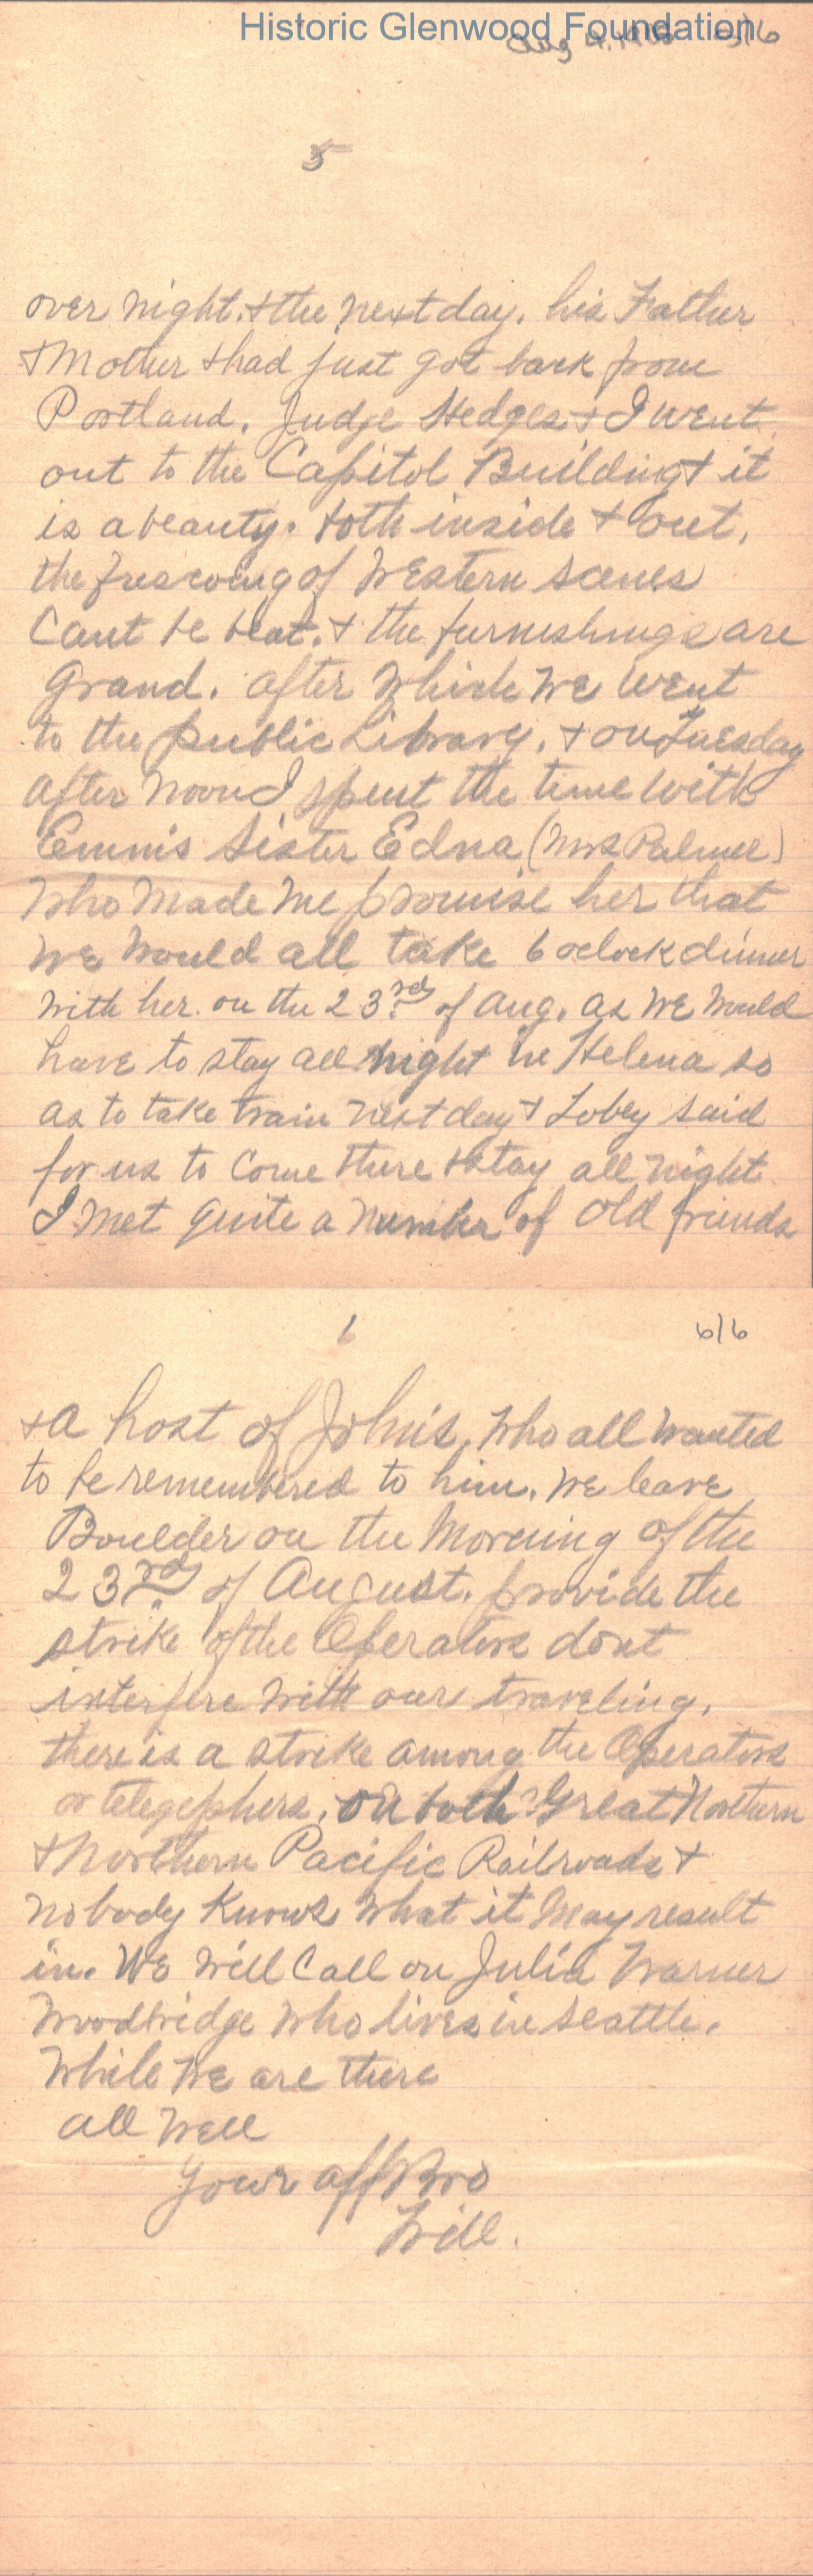 Historic Glenwood Foundation
Aug 4. 5/6
5
over night. & the next day. his Father
& Mother & had just got back from
Portland. Judge Hedges & I went
out to the Capitol Building & it
is a beauty. both inside & out,
the frescoeing of Western scenes
Cant be beat. & the furnishings are
Grand. after which we went
to the public Library, & on Tuesday
after noon I spent the time with
Emms Sister Edna (Mrs Palmer)
who made me promise her that
we would all take 6 oclock dinner
with her on the 23rd of Aug. as we would
have to stay all night in Helena so
as to take train next day & Tobey said
for us to Come there & stay all night
I met quite a number of old friends
6 6/6
& a host of Johns, who all wanted
to be remembered to him. we leave
Boulder on the Morning of the
23rd of August. provide the
strike of the Operators dont
interfere with our traveling.
there is a strike among the Operators
or telegephers. on both Great Northern
& Northern Pacific Railroads &
nobody Knows what it may result
in. We will Call on Julia Warner
Woodbridge who lives in Seattle.
While we are there
all well
your aff Bro
Will.